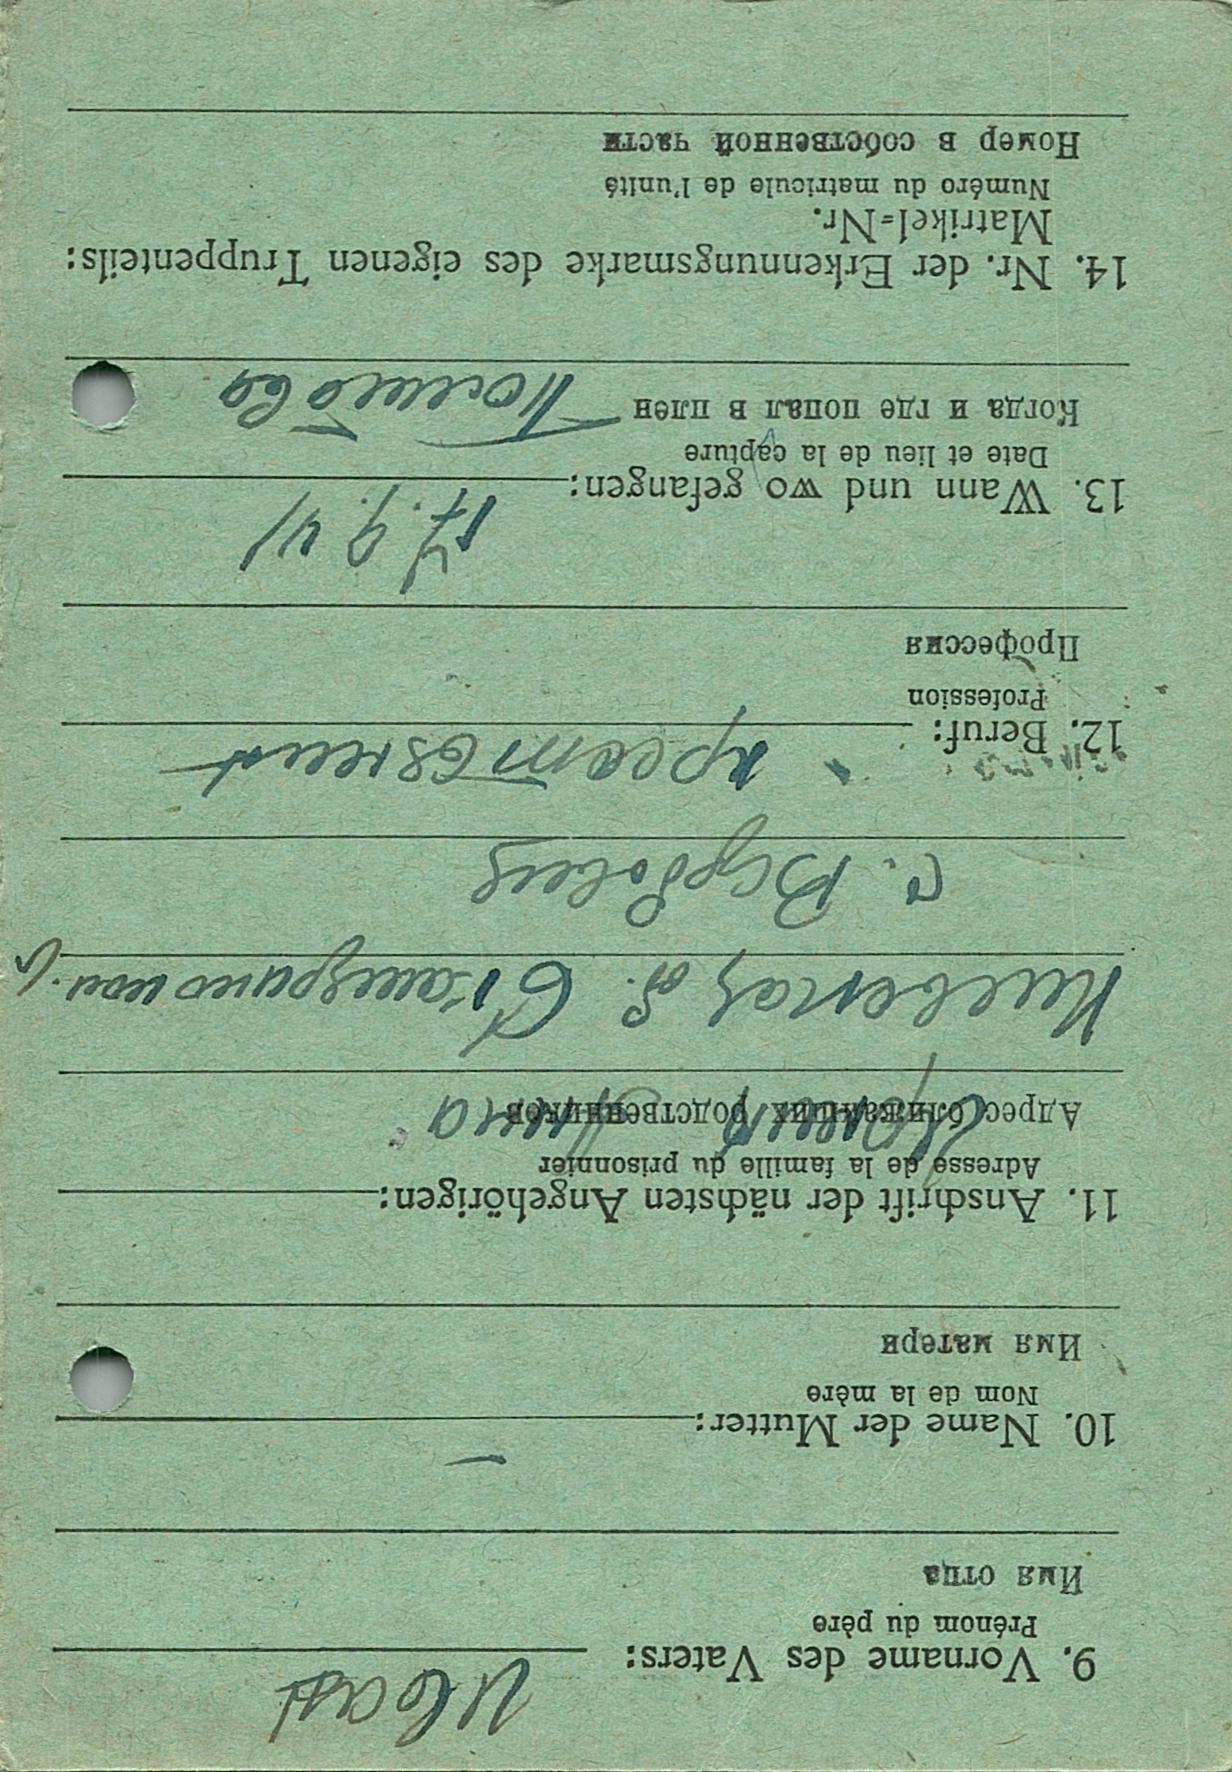 Иван
9. Vorname des Vaters:
Prénom du père
Имя отца
10. Name der Mutter: —
Nom de la mère
Имя матери
11. Anschrift der nächsten Angehörigen:
Adresse de la famille du prisonnier
Адрес ближайших родственников
Анна
Киевская о.
с.
12. Beruf:
Profession
крестьянин
Профессия
17.9.41
13. Wann und wo gefangen:
Date et lieu de la capture
Когда и где попал в плен
14. Nr. der Erkennungsmarke des eigenen Truppenteils:
Matrikel=Nr.
Numéro du matricule de l'unité
Номер в собственной части